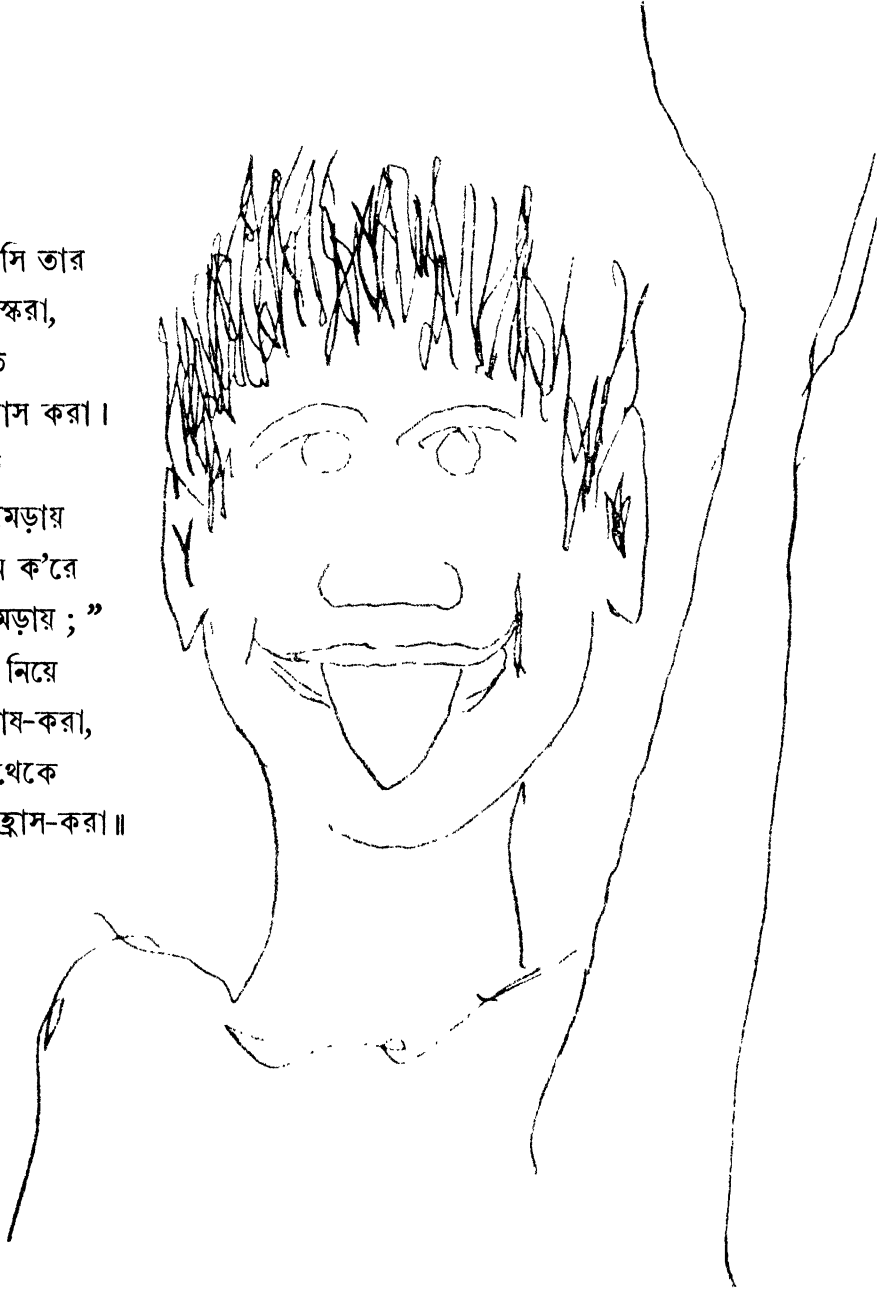 সি তার
স্করা,
াস করা।
মড়ায়
ক'রে
মড়ায় ; ”
নিয়ে
াষ-করা,
থেকে
হ্রাস-করা॥